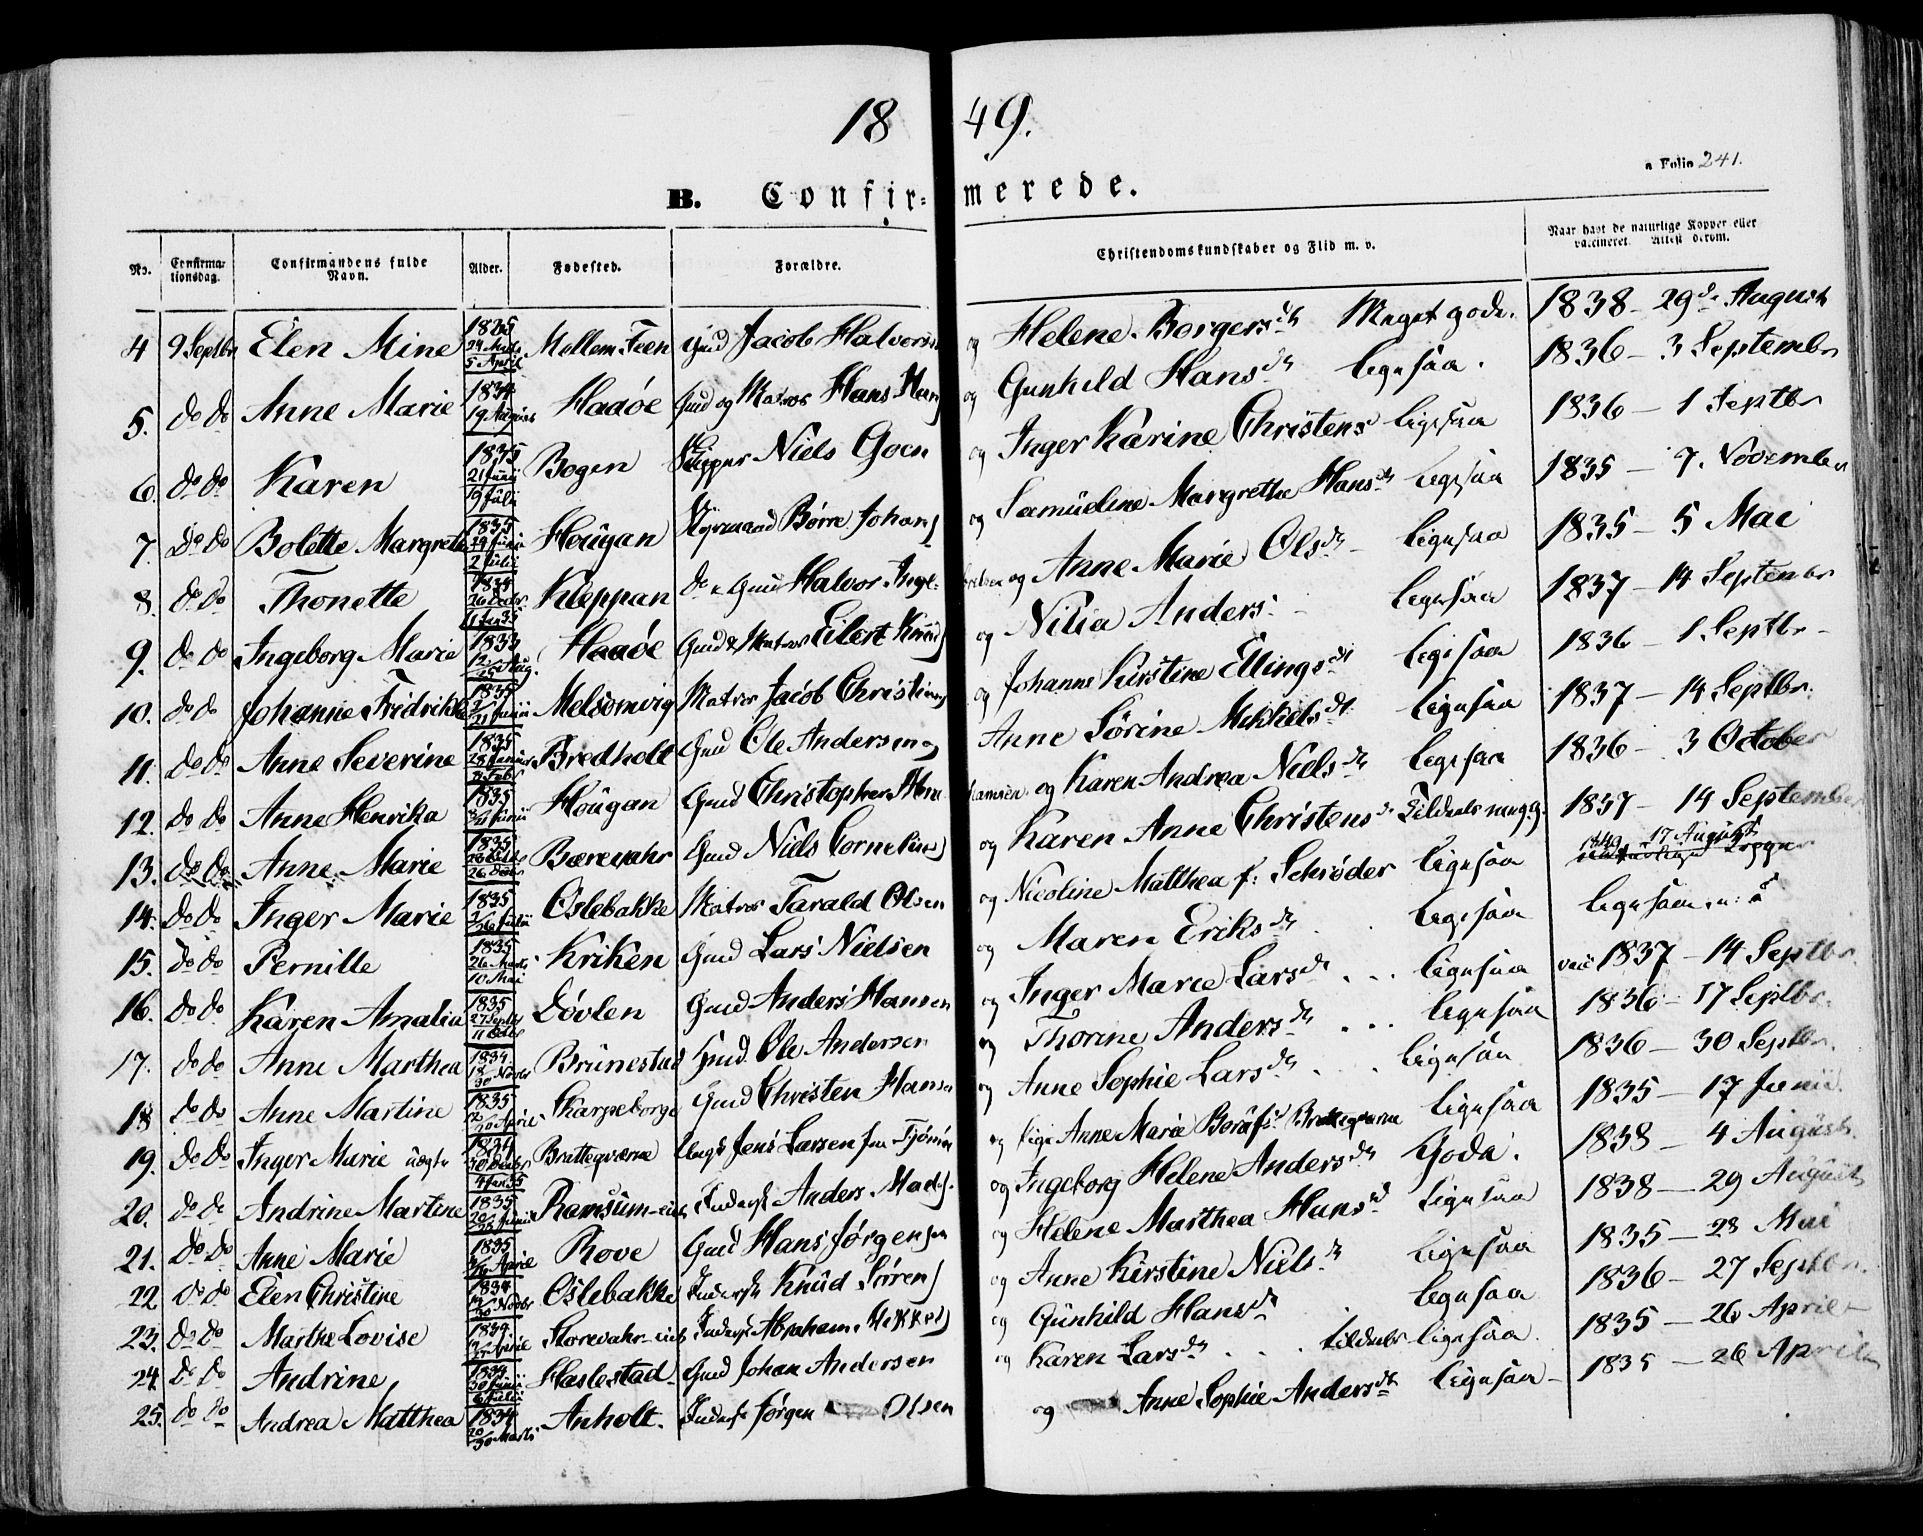 18 49.
a Folio 241.
B. Confir- merede.
No. Confirmationsdag. Confirmandens fulde Navn. Alder. Fødested. Forældre. Christendomskundskaber og Flid m. v. Naar havt de naturlige Kopper eller vaccineret. Attest derom.
4 9 Septbr Elen Mine 1835 5 April Mellem Feen Gmd Jacob Halvorsen og Helene Borgersdtr Meget gode. 1838 - 29de August
5. do do Anne Marie 1834 19 August Haaöe Gmd og Matros Hans Hans og Gunhild Hansdtr ligesaa. 1836 - 3 Septembr
6. do do Karen 1835 21 Junii 19 Juli Bogen Skipper Niels Goen og Inger Karine Christens ligesaa 1836 - 1 Septbr
7. do do Bolette Margrete 1835 29 Junii 2 Julii Hougan Styrmand Børre Johans og Samueline Margrethe Hansdtr ligesaa 1835 - 7. November
8. do do Thonette 1834 26 Decbr 11 Jan 35 Kleppan do & Gmd Halvor Inge- og Anne Marie Olsdtr - ligesaa 1835 - 5 Mai
9. do do Ingeborg Marie 1833 12 25 Aug. Haaöe Gmd & Matros Eilert Knuds og Nilia Anders ligesaa 1837 - 14 Septembr
10. do do Johanne Fridrikke 1835 21 Junii Melsomvig Matros Jacob Christians og Johanne Kirstine Ellingsdtr ligesaa 1836 - 1 Septbr -
11. do do Anne Severine 1835 28 Januar Febr Bredholt Gmd Ole Andersen og Anne Sørine Mikkelsdtr ligesaa 1837 - 14 Septbr.
12. do do Anne Henrika 1835 Junii Hougan Gmd Christopher Abra- hamsen og Karen Andrea Nielsdtr ligesaa 1836 - 3 October
13. do do Anne Marie 1835 26 Decbr Bærevahr Gmd Niels Cornelius og Karen Anne Christens Tildeels meg. g. 1837 - 14 September
14. do do Inger Marie 1835 26 Julii Oslebakke Matros Tarald Olsen og Nicoline Matthea f: Schrøder ligesaa 1849 17 August
15. do do Pernille 1835 26 Marts 10 Mai Kriken Gmd Lars Nielsen og Maren Eriksdtr ligesaa ligesaa
16. do do Karen Amalia 1835 27 Septbr 11 Octbr Løvlen Gmd Anders Hansen og Inger Marie Larsdtr ... ligesaa vac 1837 - 14 Septbr
17. do do Anne Marthea 1834 18 30 Novbr Brunestad Gmd. Ole Andersen og Thorine Andersdtr ... ligesaa 1836 - 17 Septbr.
18 do do Anne Martine 1835 12 20 April Skarpeborge Gmd Christen Hansen og Anne Sophie Larsdtr ... ligesaa 1836 - 30 Septbr.
19. do do Inger Marie uægte 1834 30 Decbr 4 Jan 35 Bratteqværne Ungk Jens Larsen fra Tjömöe og Pige Anne Marie Bratteqværne ligesaa 1835 - 17 Junii.
20. do do Andrine Martine 1835 20 28 Junii Ramsum-eiet Inderst Anders Mads. og Ingeborg Helene Andersdtr Goda. 1838 - 4 August.
21. do do Anne Marie 1835 April Rove Gmd Hans Jørgensen og Helene Marthea Hansd ligesaa 1838 - 29 August
22 do do Elen Christine 1834 Novbr Oslebakke Inderst Knud Sørens og Anne Kirstine Nielsdtr ligesaa 1835 - 28 Mai
23. do do Marthe Lovise 1834 April Storevahr-eiet Inderst Abraham Mikkels og Gunhild Hansdtr ligesaa 1836 - 27 Septbr.
24. do do Andrine 1834 30 Junii 6 Julii Haslestad Gmd Johan Andersen og Karen Larsdtr ... tildeels ligesaa. 1835 - 26 April
25. do do Andrea Matthea 1834 20 30 Marts Anholt. Inderst Jørgen Olsen og Anne Sophie Andersdtr ligesaa - 1835 - 26 April